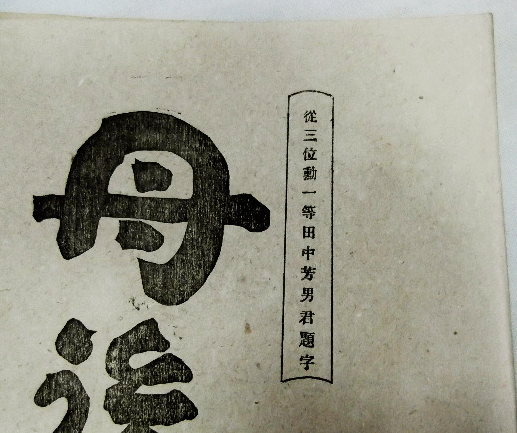 從三位勳一等田中芳男君題字
丹後